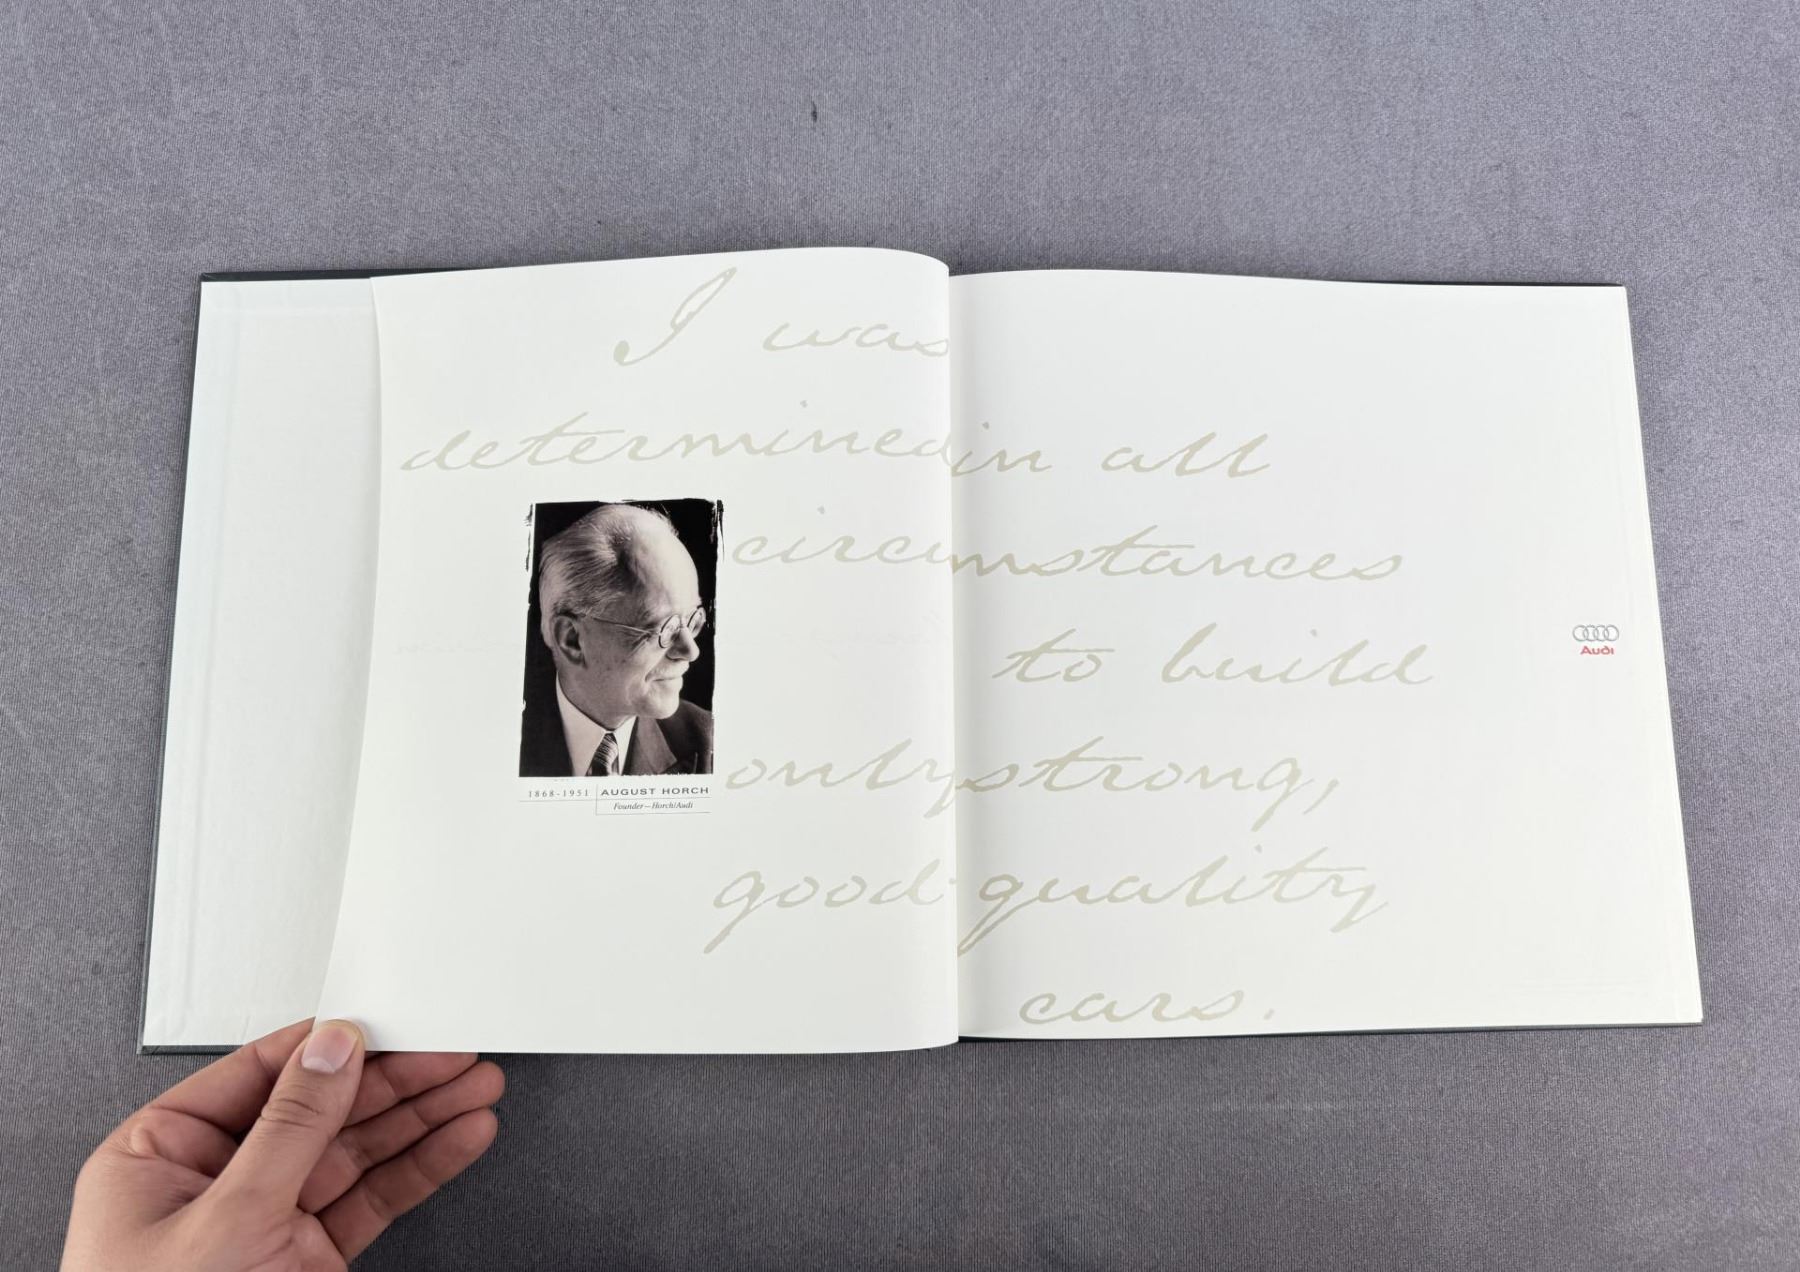 I was
determined in all
circumstances
to build
only strong,
good quality
cars.
1868-1951 AUGUST HORCH
Founder—Horch/Audi
Audi